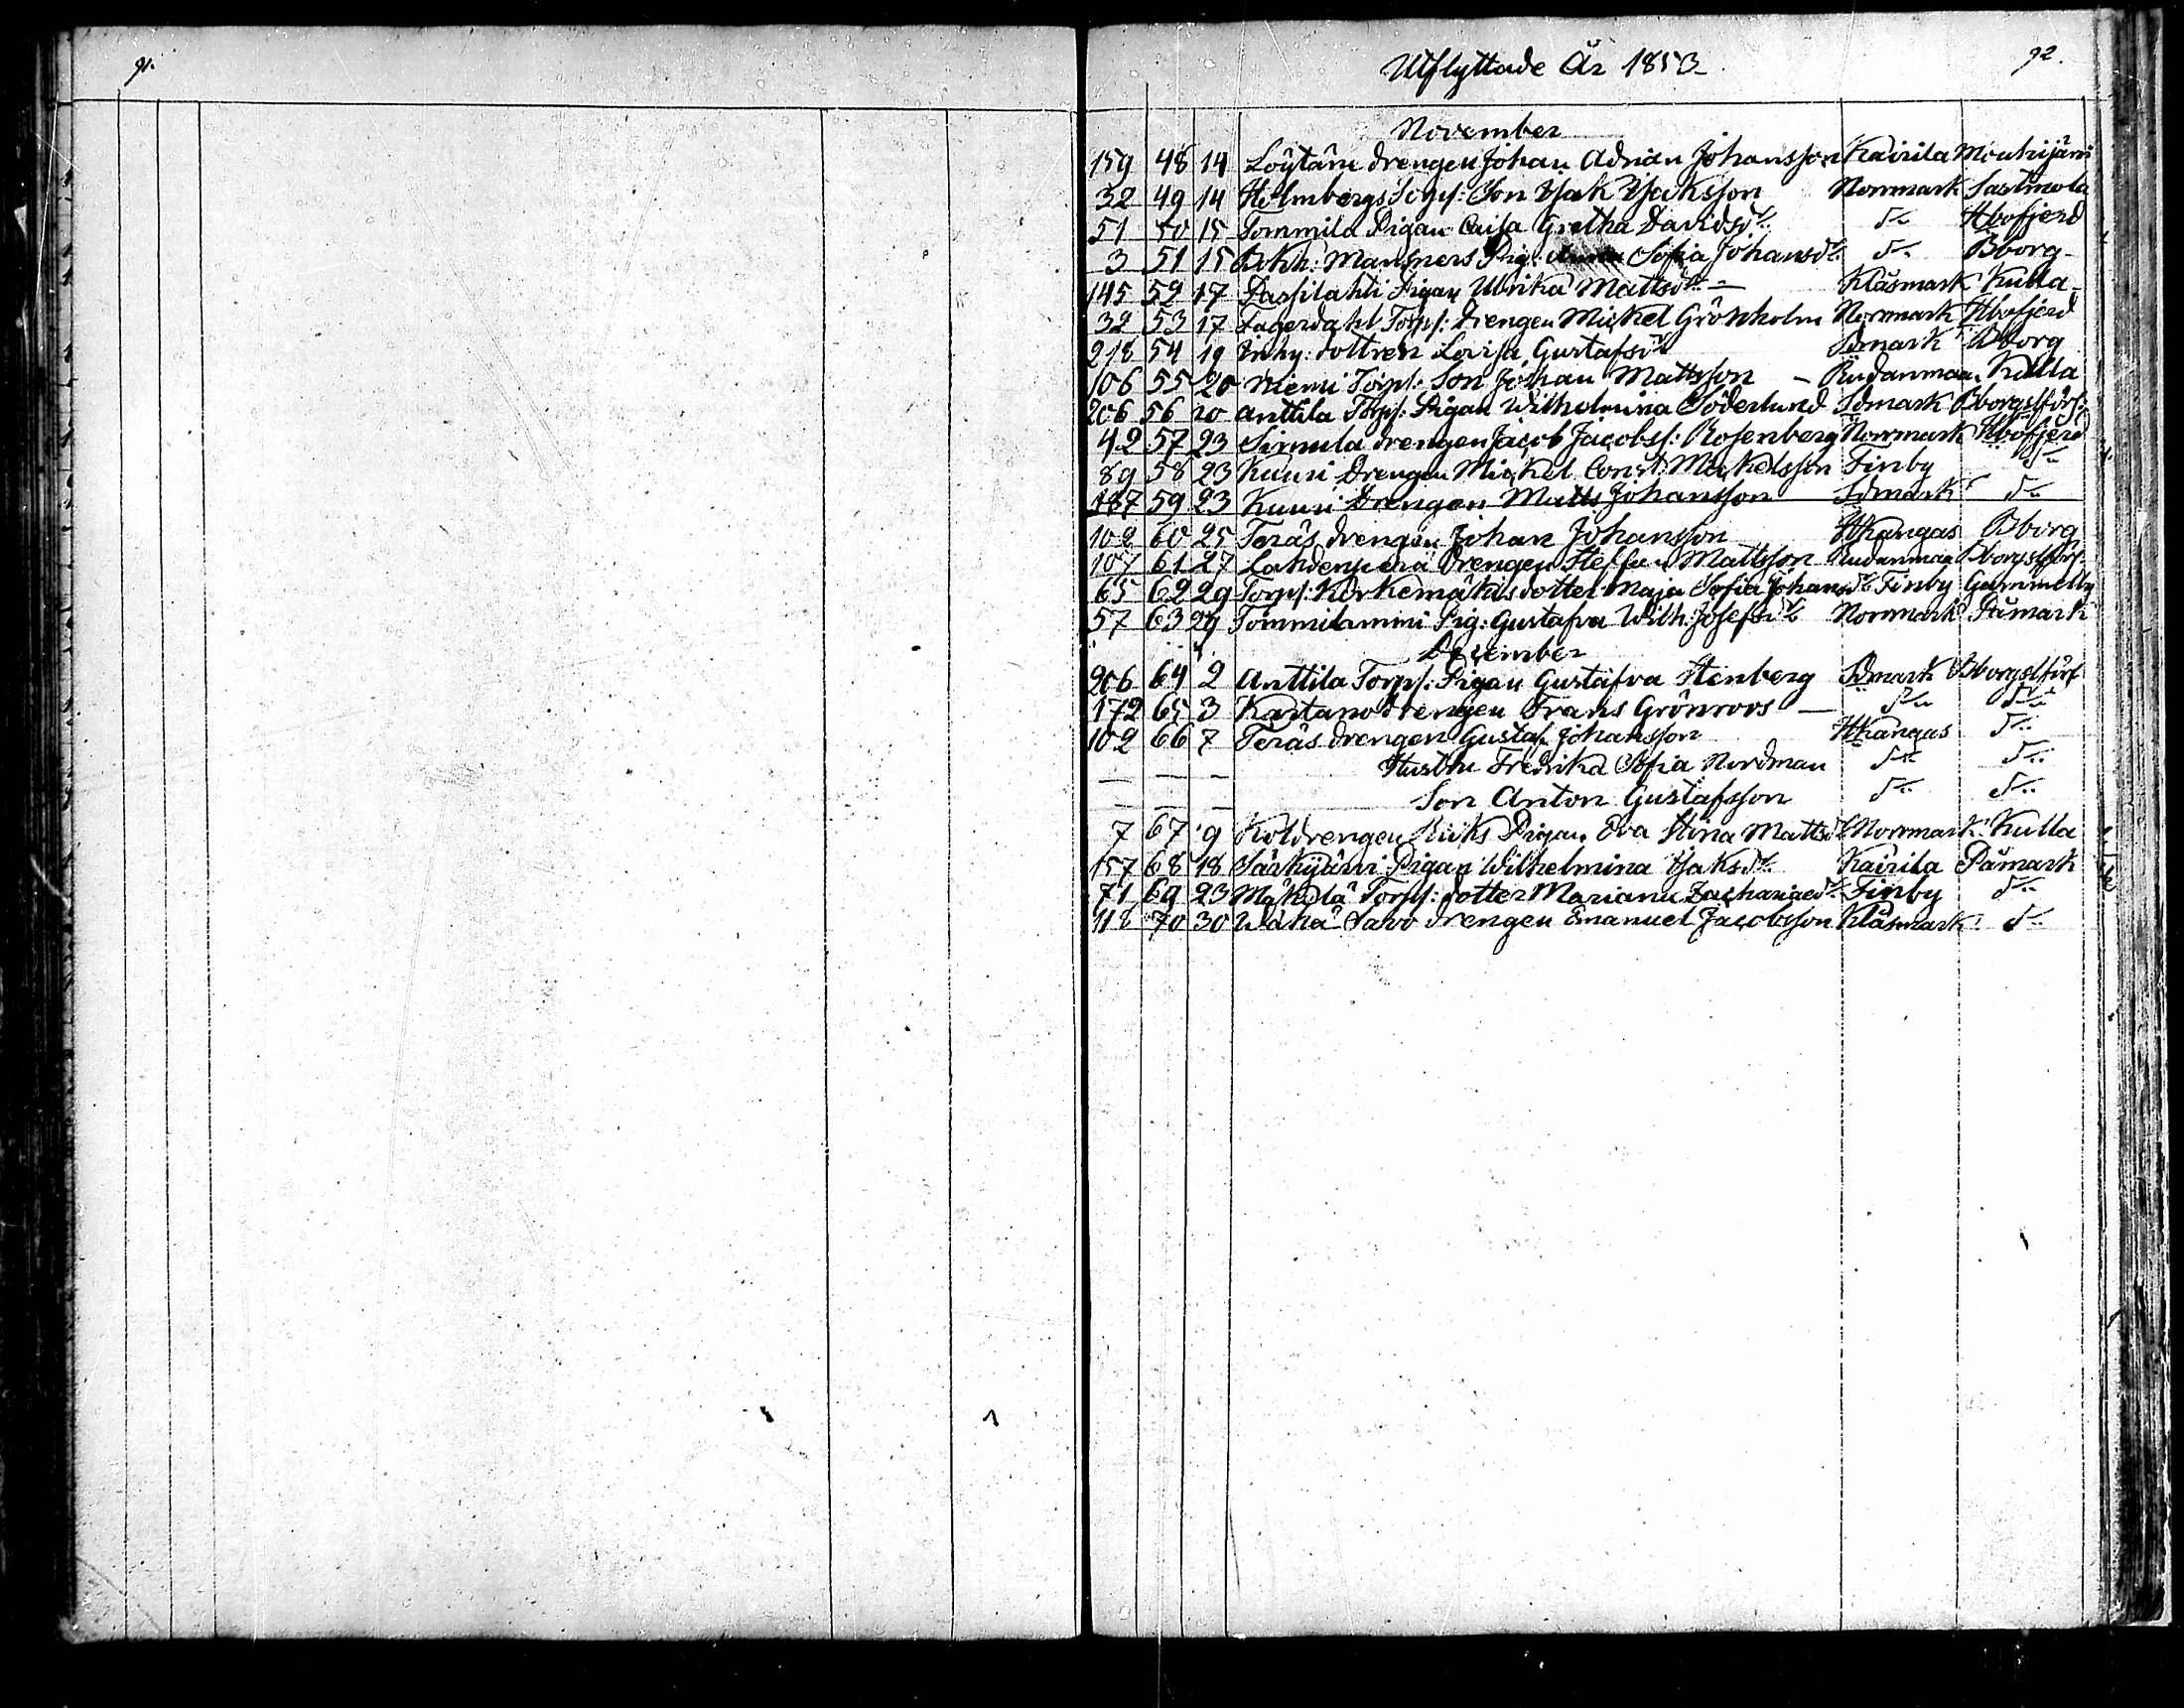 91.
Utflyttade År 1853
92.
November
159 48 14 Löytäne drengen Johan Adrian Johansson Kairila Mouhijärvi
32 49 14 Holmbergs Torps: Son Isak Isaksson Norrmark Sastmola
51 50 15 Tommila Pigan Caisa Gretha Davidsdr Do Hbofjerd
3 51 15 Pig: Sofia Johansdr Do Bborg
145 52 17 Passilahti Pigan Ulrika Mattsdr - Klåsmark Kulla
32 53 17 Fagerdahl Torps: drengen Mickel Grönholm Norrmark Hbofjerd
218 54 19 Inhy: dottren Lovisa Gustafsdr Sdmark Bborg
106 55 20 Niemi Torps: Son Johan Mattsson - Rudanmaa Kulla
206 56 20 Anttila Torps: Pigan Wilhelmina Söderlund Sdmark Bborgslförs:
42 57 23 Sirnula drengen Jacob Jacobss: Rosenberg Norrmark Hbofjerd
89 58 23 Kuusi Drengen Mickel Const: Mickelsson Finby Do
187 59 23 Kuusi Drengen Matts Johansson Sdmark Do
102 60 25 Teräs drengen Johan Johansson Hkangas Bborg
107 61 27 Lahdenperä Drengen Steffan Mattsson Rudanmaa Bborgslförs:
65 62 29 Torps: Korkemäkis dotter Maja Sofia Johansdr Finby Gammelby
57 63 29 Tommilamini Pig: Gustafva Wilh: Josefsdr Norrmark Påmark
December
206 64 2 Anttila Torps: Pigan Gustafva Stenberg Sdmark Bborgslförs
172 65 3 Kartano drengen Frans Grönroos - Do Do
102 66 7 Teräs drengen Gustaf Johansson Hkangas Do
— — — Hustru Fredrika Sofia Nordman Do Do
— — — Son Anton Gustafsson Do Do
7 67 9 Koldrengen Pigan Eva Stina Mattsdr Norrmark Kulla
157 68 18 Särkijärvi Pigan Wilhelmina Isaksdr Kairila Påmark
71 69 23 Mäkelä Torps: dotter Mariana Zachariaedr Finby Do
118 70 30 Wähä Savo drengen Emanuel Jacobsson Klåsmark Do